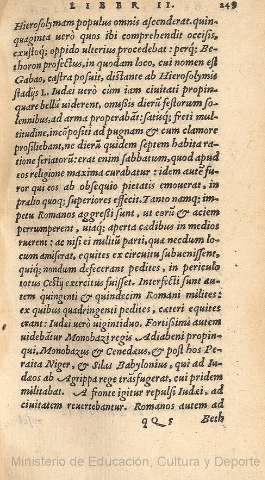 LIBER II. 249
Hierosolymam populus omnis ascenderat. quin-
quaginta uerò quos ibi comprehendit occisis,
exustoq; oppido ulterius procedebat: perq; Be-
thoron profectus, in quodam loco, cui nomen est
Gabao, castra posuit, distante ab Hierosolymis
stadijs L. Iudei uerò cùm iam ciuitati propin-
quare bellũ uiderent, omißis dierũ festorum so-
lennibus, ad arma properabãt: satisq; freti mul-
titudine, incõpositi ad pugnam & cum clamore
prosiliebant, ne dierũ quidem septem habita ra-
tione feriatorũ: erat enim sabbatum, quod apud
eos religione maxima curabatur: idem autẽ fu-
ror qui eos ab obsequio pietatis emouerat, in
prælio quoq; superiores effecit. Tanto namq; im-
petu Romanos aggreßi sunt, ut eorũ & aciem
perrumperent, uiaq; aperta cædibus in medios
ruerent: ac nisi ei militũ parti, quæ necdum lo-
cum amiserat, equites ex circuitu subuenissent,
quiq; nondum defecerant pedites, in periculo
totus Cestij exercitus fuisset. Interfecti sunt au-
tem quingenti & quindecim Romani milites:
ex quibus quadringenti pedites, cæteri equites
erant: Iudæi uerò uigintiduo. Fortißimi autem
uidebãtur Monobazi regis Adiabeni propin-
qui, Monobazus & Cenedæus, & post hos Pe-
raita Niger, & Silas Babylonius, qui ad Iu-
dæos ab Agrippa rege trãsfugerat, cui pridem
militabat. A fronte igitur repulsi Iudæi, ad
ciuitatem reuertebantur. Romanos autem ad
qQ 5 Beth
Ministerio de Educación, Cultura y Deporte